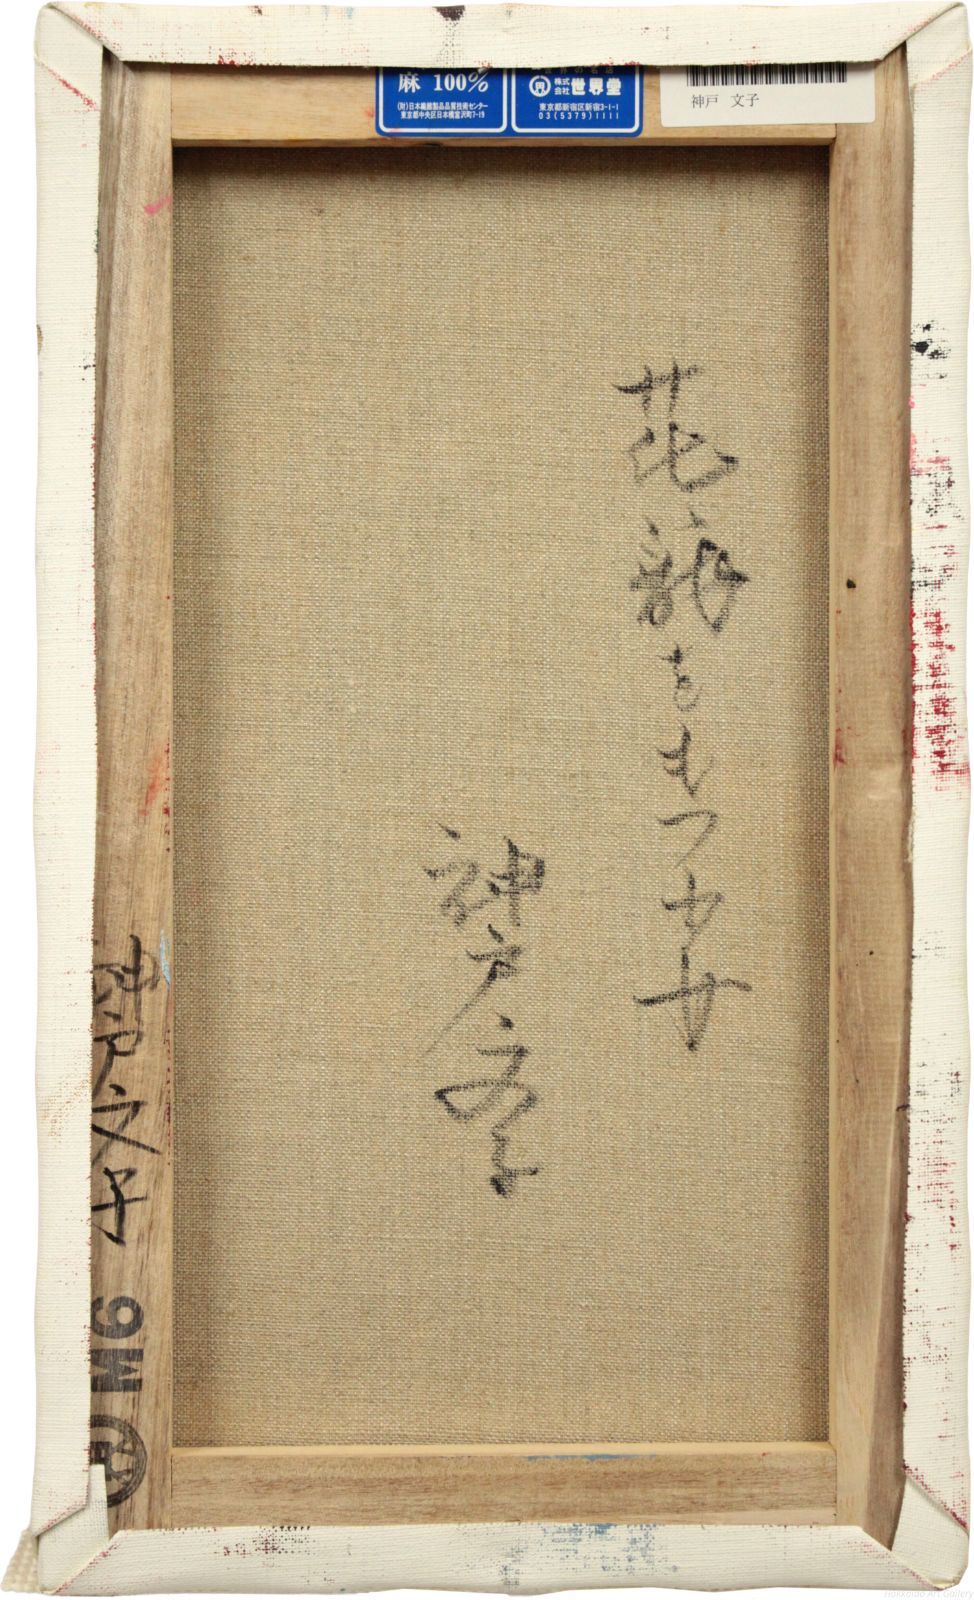 麻 100%
(財)日本繊維製品品質技術センター
東京都中央区日本橋富沢町7-19
世界の名店
株式会社 世界堂
東京都新宿区新宿3-1-1
03(5379)1111
神戸 文子
花韻をもつ少女
神戸文子
神戸文子
9M
Hokkaido Art Gallery